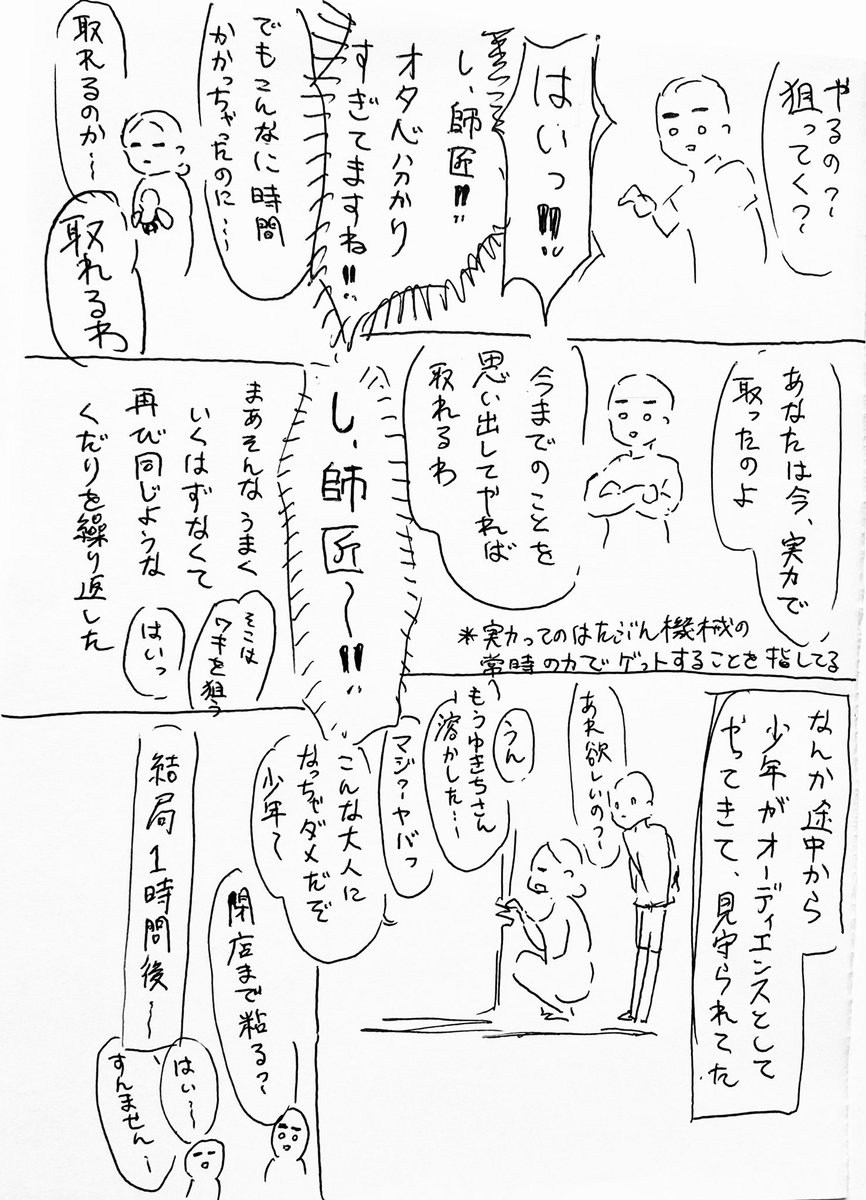 やるの？〜
狙ってく？〜
はいっ!!
し、師匠!!
オタ心分かり
すぎてますね!!
でもこんなに時間
かかっちゃったのに…〜
取れるのか〜
取れるわ
あなたは今、実力で
取ったのよ
今までのことを
思い出してやれば
取れるわ
＊実力ってのはたぶん機械の
常時の力でゲットすることを指してる
し、師匠〜!!
まあそんなうまく
いくはずなくて
再び同じような
くだりを繰り返した
そこは
ワキを狙う
はいっ
なんか途中から
少年がオーディエンスとして
やってきて、見守られてた
あれ欲しいの？〜
うん
もうゆきちさん
溶かした…〜
マジ？ーヤバっ
こんな大人に
なっちゃダメだぞ
少年〜
結局1時間後〜
閉店まで粘る？〜
はい〜
すんません〜